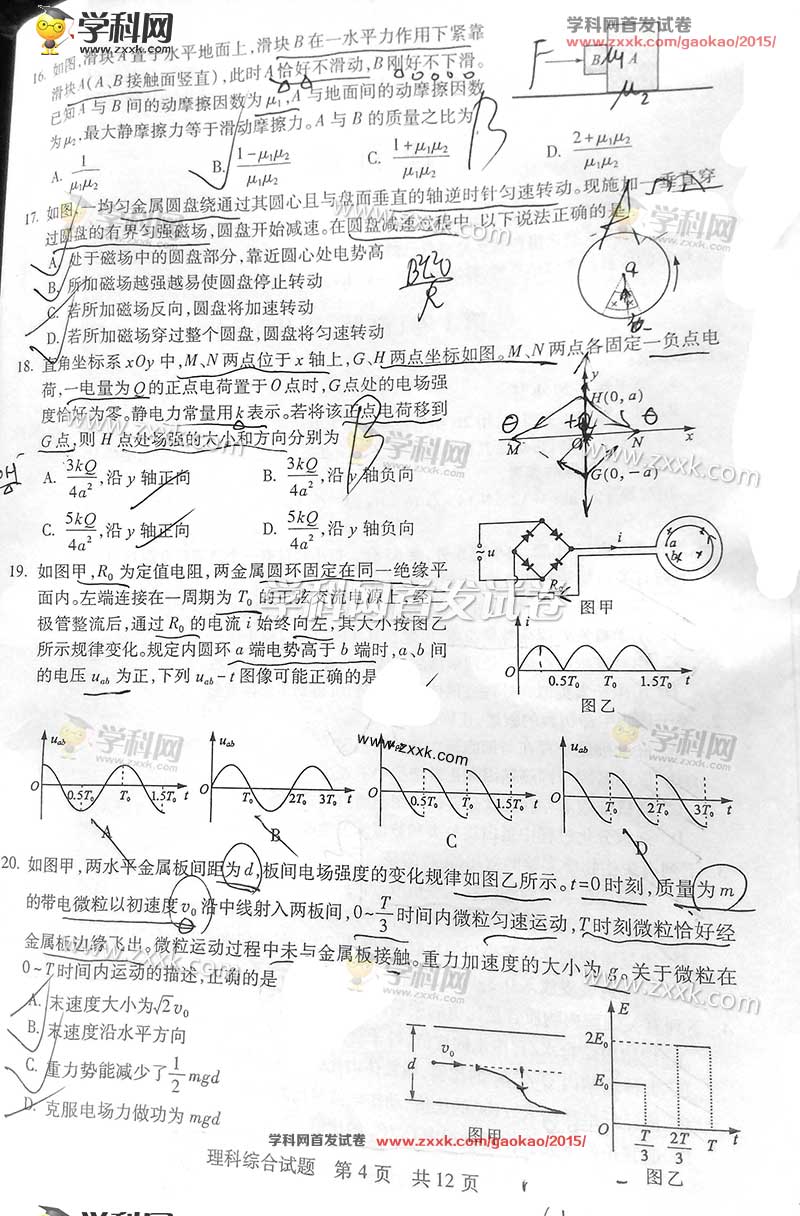 学科网
www.zxxk.com
学科网首发试卷
www.zxxk.com/gaokao/2015/
16. 如图,滑块A置于水平地面上,滑块B在一水平力作用下紧靠
滑块A(A、B接触面竖直),此时A恰好不滑动,B刚好不下滑。
已知A与B间的动摩擦因数为μ₁,A与地面间的动摩擦因数
为μ₂,最大静摩擦力等于滑动摩擦力。A与B的质量之比为
F B μ₁ A
μ₂
B
A. 1/μ₁μ₂ B. 1-μ₁μ₂/μ₁μ₂ C. 1+μ₁μ₂/μ₁μ₂ D. 2+μ₁μ₂/μ₁μ₂
17. 如图,一均匀金属圆盘绕通过其圆心且与盘面垂直的轴逆时针匀速转动。现施加一垂直穿
过圆盘的有界匀强磁场,圆盘开始减速。在圆盘减速过程中,以下说法正确的是
A. 处于磁场中的圆盘部分,靠近圆心处电势高
B. 所加磁场越强越易使圆盘停止转动
C. 若所加磁场反向,圆盘将加速转动
D. 若所加磁场穿过整个圆盘,圆盘将匀速转动
学科网
www.zxxk.com
www.zxxk.com
18. 直角坐标系xOy中,M、N两点位于x轴上,G、H两点坐标如图。M、N两点各固定一负点电
荷,一电量为Q的正点电荷置于O点时,G点处的电场强
度恰好为零。静电力常量用k表示。若将该正点电荷移到
G点,则H点处场强的大小和方向分别为
A. 3kQ/4a²,沿y轴正向 B. 3kQ/4a²,沿y轴负向
C. 5kQ/4a²,沿y轴正向 D. 5kQ/4a²,沿y轴负向
y
H(0, a)
M O N x
G(0, -a)
学科网
www.zxxk.com
19. 如图甲,R₀为定值电阻,两金属圆环固定在同一绝缘平
面内。左端连接在一周期为T₀的正弦交流电源上,经二
极管整流后,通过R₀的电流i始终向左,其大小按图乙
所示规律变化。规定内圆环a端电势高于b端时,a、b间
的电压uab为正,下列uab-t图像可能正确的是
~u i a b
R₀
图甲
学科网首发试卷
i
O 0.5T₀ T₀ 1.5T₀ t
图乙
学科网
www.zxxk.com
学科网
www.zxxk.com
www.zxxk.com
uab O 0.5T₀ T₀ 1.5T₀ t
A
uab O T₀ 2T₀ 3T₀ t
B
uab O 0.5T₀ T₀ 1.5T₀ t
C
uab O T₀ 2T₀ 3T₀ t
D
20. 如图甲,两水平金属板间距为d,板间电场强度的变化规律如图乙所示。t=0时刻,质量为m
的带电微粒以初速度v₀沿中线射入两板间,0~T/3时间内微粒匀速运动,T时刻微粒恰好经
金属板边缘飞出。微粒运动过程中未与金属板接触。重力加速度的大小为g。关于微粒在
0~T时间内运动的描述,正确的是
A. 末速度大小为√2v₀
B. 末速度沿水平方向
C. 重力势能减少了1/2 mgd
D. 克服电场力做功为mgd
学科网
www.zxxk.com
www.zxxk.com
d v₀
图甲
E
2E₀
E₀
O T/3 2T/3 T t
图乙
学科网首发试卷
www.zxxk.com/gaokao/2015/
理科综合试题 第4页 共12页